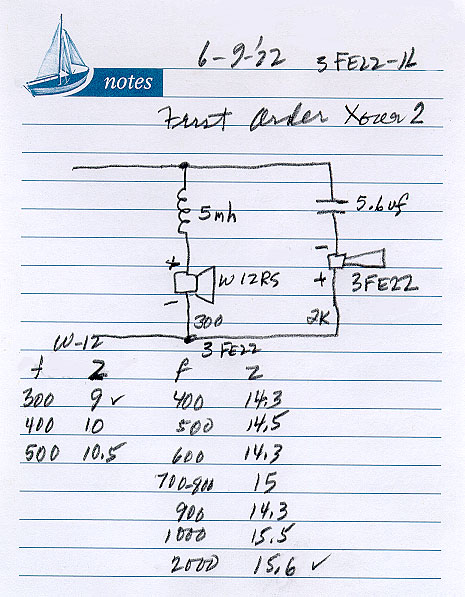 6-9-'22 3FE22-16
notes
First Order Xover 2
5mh 5.6uf
+ -
W12RS 3FE22
- +
300 2K
W-12 3FE22
f Z f Z
300 9 ✓ 400 14.3
400 10 500 14.5
500 10.5 600 14.3
700-800 15
900 14.3
1000 15.5
2000 15.6 ✓